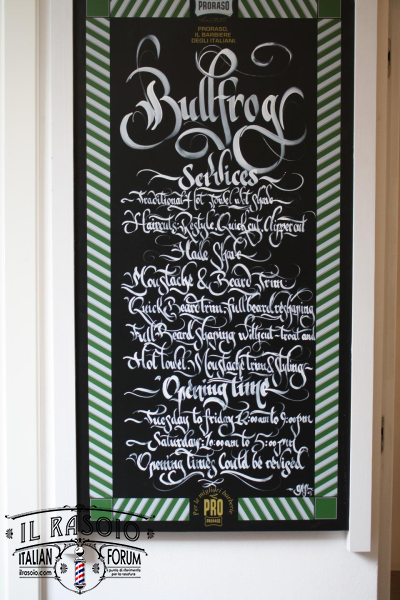 PRORASO
PRORASO,
IL BARBIERE
DEGLI ITALIANI.
Bullfrog
Services
Traditional Hot Towel Wet Shave
Haircuts: Restyle, Quick cut, Clipper cut
Made Shave
Moustache & Beard Trim
Quick Beard trim, full beard reshaping
Full Beard Shaping without-treat and
Hot towel, Moustache trim & styling
Opening time
Tuesday to friday 12:00am to 9:00pm
Saturday: 10:00am to 5:00pm
Opening times Could be revised
Per le migliori barberie
PRO
PRORASO
IL RASOIO
ITALIAN FORUM
ilrasoio.com
punto di riferimento
per la rasatura